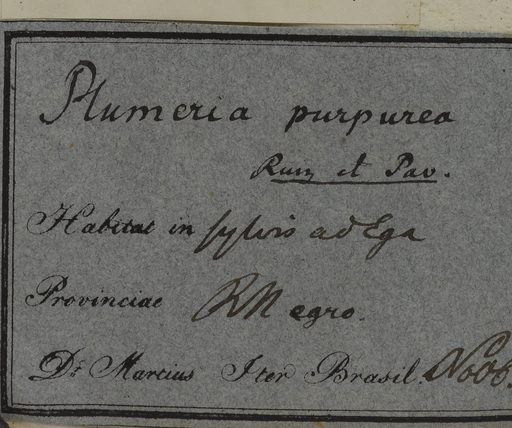 Plumeria purpurea
Ruiz et Pav.
Habitat in sylvis ad Ega
Provinciae R Negro.
Dr. Martius Iter Brasil. Nobb.